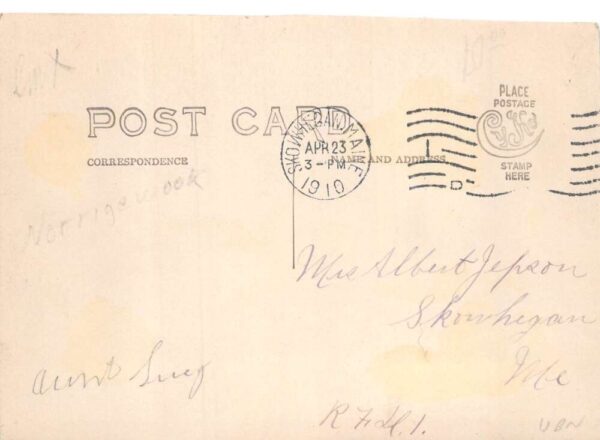 POST CARD
CORRESPONDENCE
NAME AND ADDRESS
SKOWHEGAN, MAINE
APR 23
3-PM
1910
1
D
PLACE
POSTAGE
CyKo
STAMP
HERE
Norrigewock
Mrs Albert Jepson
Skowhegan
Me
Aunt Lucy
UBN